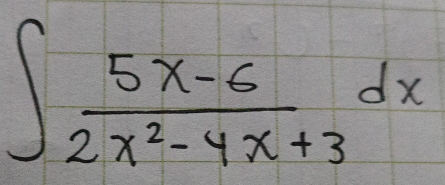 ∫ (5x-6)/(2x²-4x+3) dx